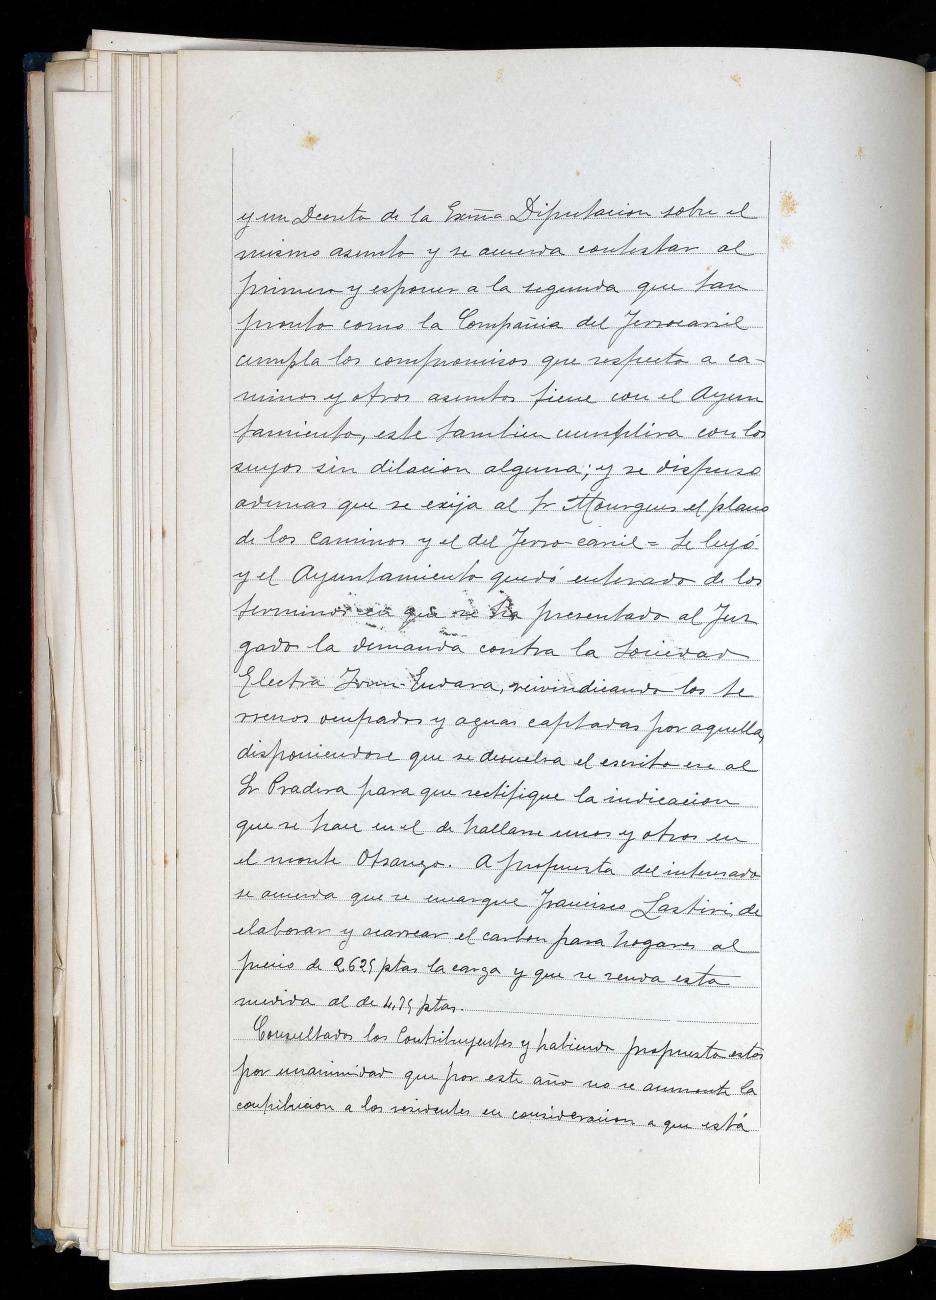 y un Decreto de la Exma Diputacion sobre el
mismo asunto y se acuerda contestar al
primero y esponer a la segunda que tan
pronto como la Compañia del Ferrocarril
cumpla los compromisos que respecto a ca-
minos y otros asuntos tiene con el Ayun
tamiento, este tambien cumplira con los
suyos sin dilacion alguna; y se dispuso
ademas que se exija al Sr Mourgues el plano
de los caminos y el del Ferro-carril = Se leyó
y el Ayuntamiento quedó enterado de los
terminos en que se ha presentado al Juz
gado la demanda contra la Sociedad
Electra Irun-Endara, reivindicando los te
rrenos ocupados y aguas captadas por aquella,
disponiendose que se devuelva el escrito ese al
Sr Pradera para que rectifique la indicacion
que se hace en el de hallarse unos y otros en
el monte Otsango. A propuesta del interesado
se acuerda que se encargue Francisco Lastiri de
elaborar y acarrear el carbon para hogares al
precio de 2625 ptas la carga y que se venda esta
medida al de 4,75 ptas.
Consultados los Contribuyentes y habiendo propuesto estos
por unanimidad que por este año no se aumente la
contribucion a los residentes en consideracion a que está